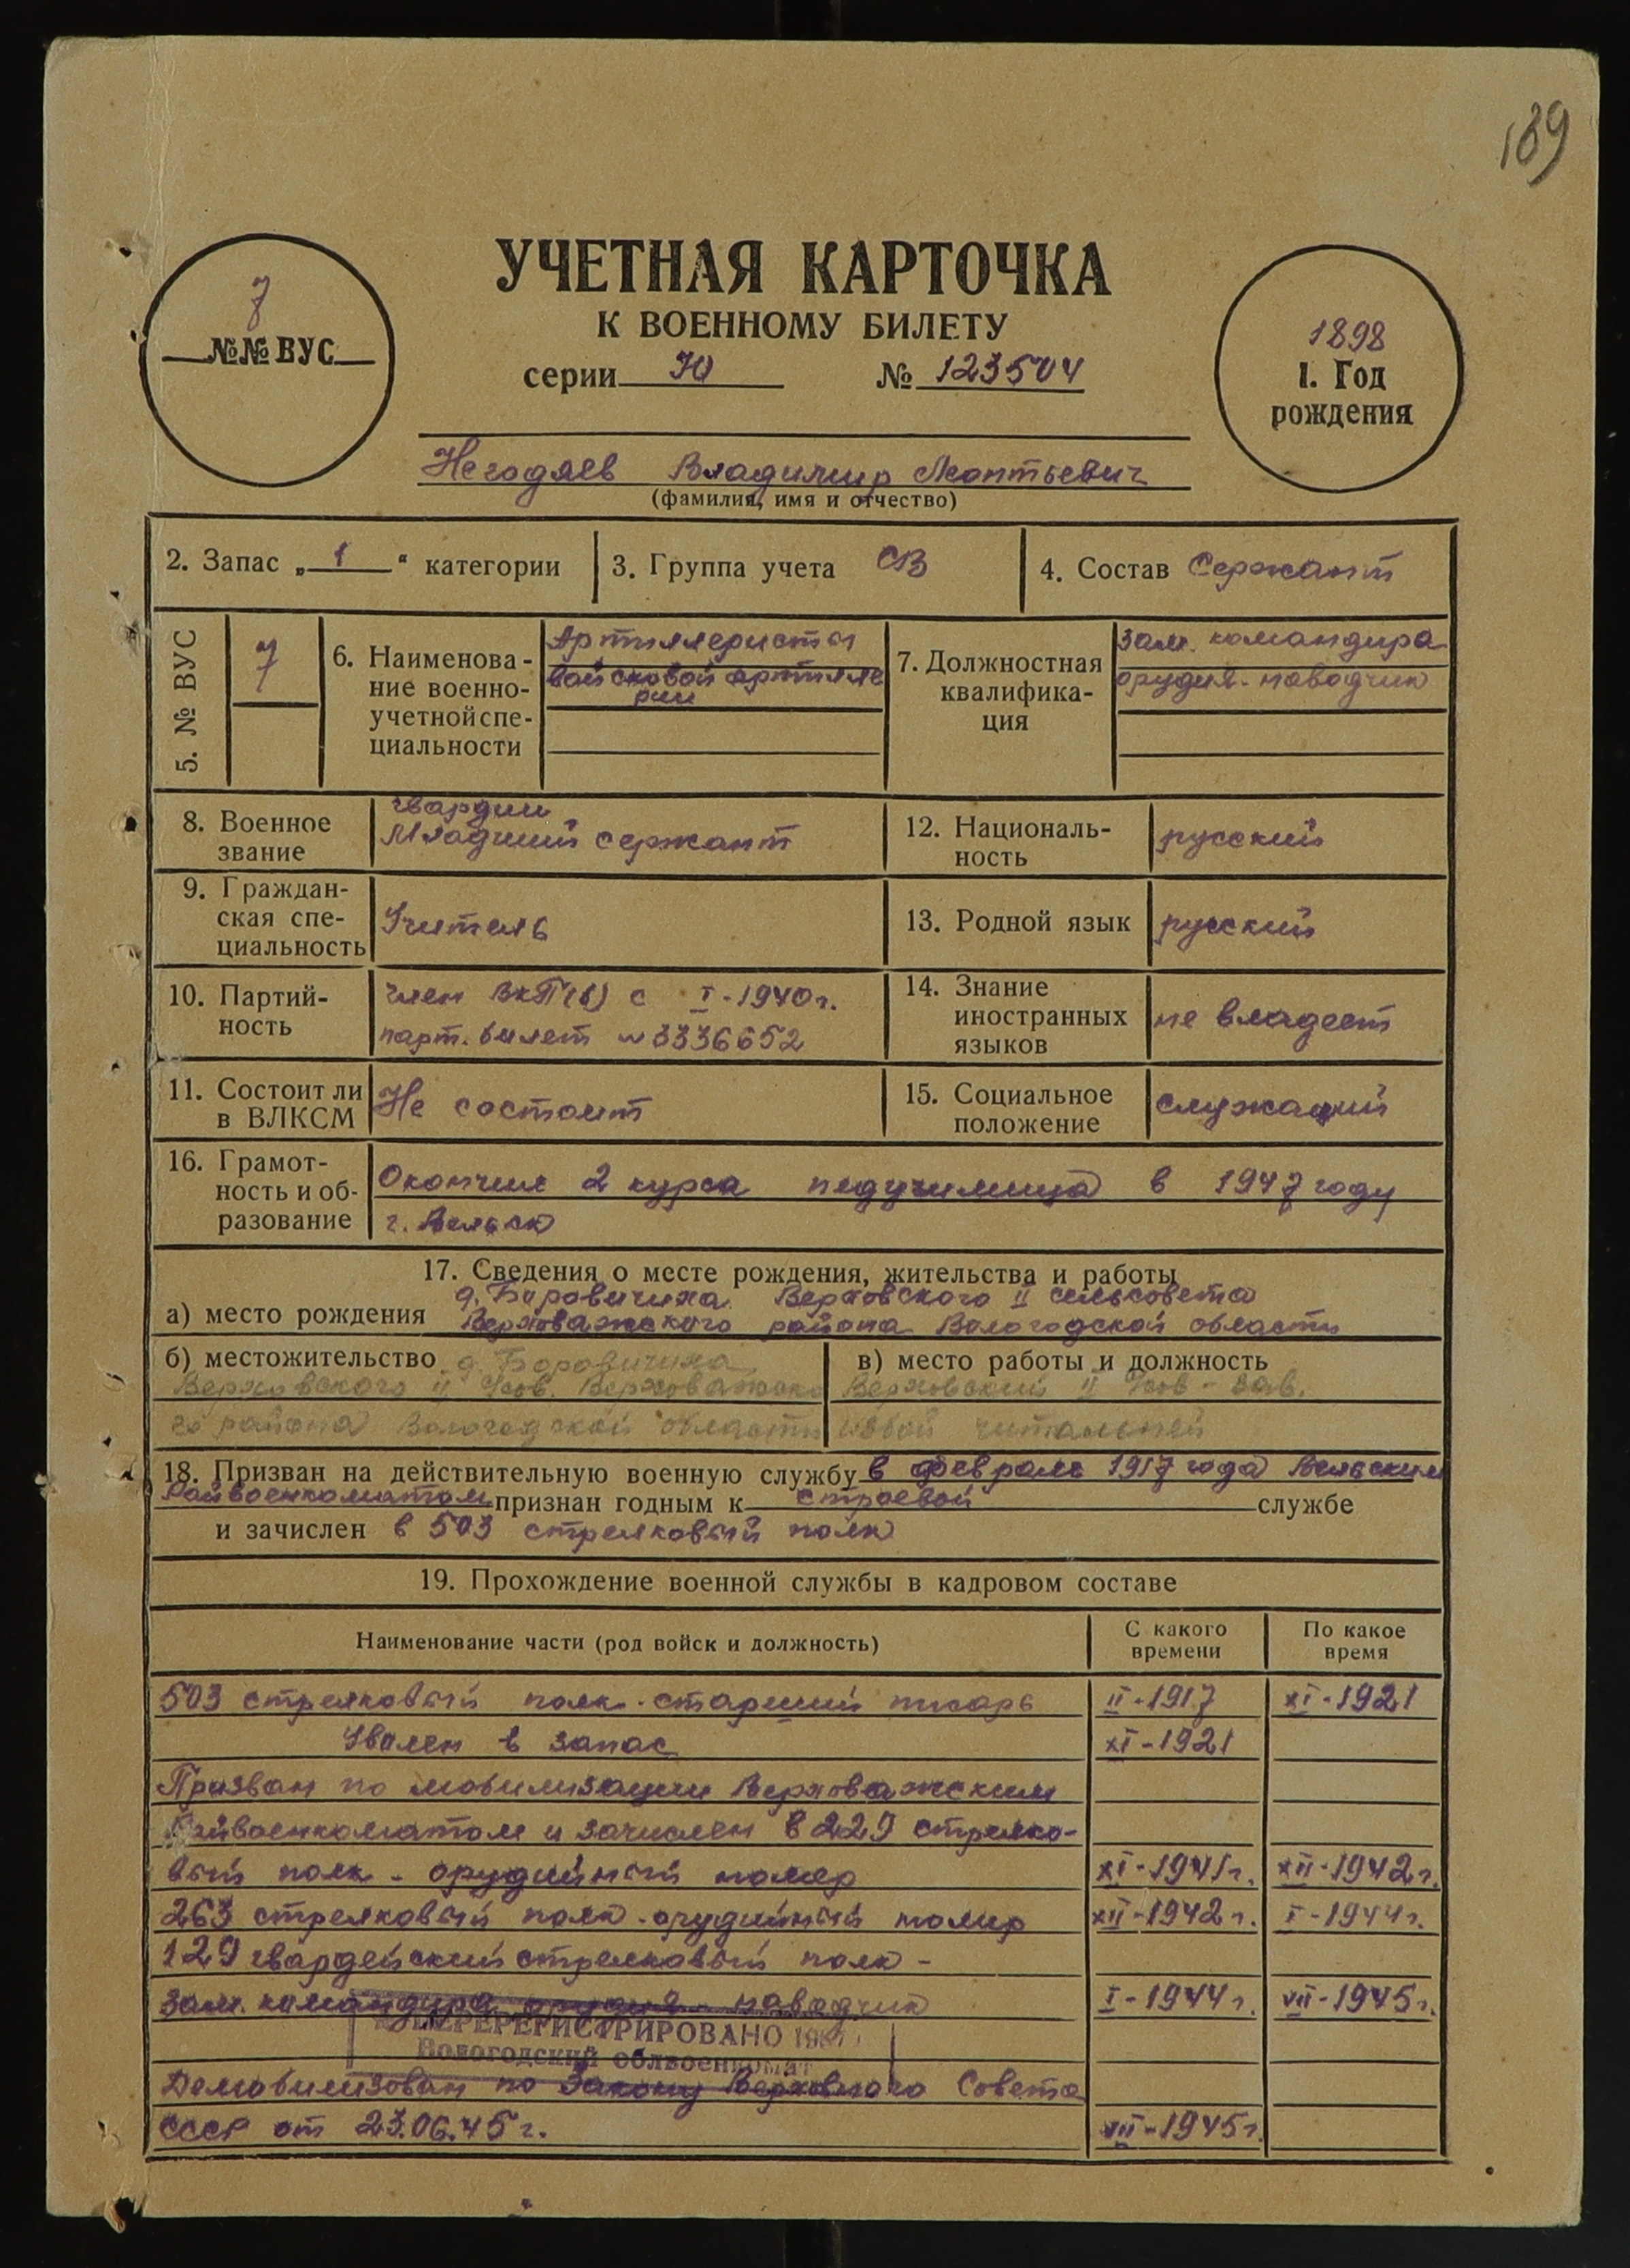 189
УЧЕТНАЯ КАРТОЧКА
К ВОЕННОМУ БИЛЕТУ
серии Ю № 123504
7
№№ ВУС
1898
1. Год
рождения
Негодяев Владимир Леонтьевич
(фамилия, имя и отчество)
2. Запас „1“ категории
3. Группа учета СВ
4. Состав Сержант
5. № ВУС
7
6. Наименова-
ние военно-
учетной спе-
циальности
Артиллеристы
войсковой артилле
рии
7. Должностная
квалифика-
ция
зам. командира
орудия-наводчик
8. Военное
звание
гвардии
Младший сержант
12. Националь-
ность
русский
9. Граждан-
ская спе-
циальность
Учитель
13. Родной язык
русский
10. Партий-
ность
член ВКП(б) с I-1940г.
парт. билет №3336652
14. Знание
иностранных
языков
не владеет
11. Состоит ли
в ВЛКСМ
Не состоит
15. Социальное
положение
служащий
16. Грамот-
ность и об-
разование
Окончил 2 курса педучилища в 1947 году
г. Вельск
17. Сведения о месте рождения, жительства и работы
а) место рождения
д. Боровичиха Верховского II сельсовета
Верховажского района Вологодской области
б) местожительство д. Боровичиха
Верховского II с/сов. Верховажско
го района Вологодской области
в) место работы и должность
Верховский II с/сов - зав.
избой читальней
18. Призван на действительную военную службу в феврале 1917 года Вельским
Райвоенкоматом признан годным к строевой службе
и зачислен в 503 стрелковый полк
19. Прохождение военной службы в кадровом составе
Наименование части (род войск и должность)
С какого
времени
По какое
время
503 стрелковый полк-старший писарь II-1917 XI-1921
Уволен в запас XI-1921
Призван по мобилизации Верховажским
Райвоенкоматом и зачислен в 229 стрелко-
вый полк - орудийный номер XI-1941г. XII-1942г.
263 стрелковый полк-орудийный номер XII-1942г. I-1944г.
129 гвардейский стрелковый полк -
зам. командира орудия - наводчик I-1944г. VII-1945г.
ПЕРЕРЕГИСТРИРОВАНО
Вологодский облвоенкомат
Демобилизован по Закону Верховного Совета
СССР от 23.06.45г. VII-1945г.